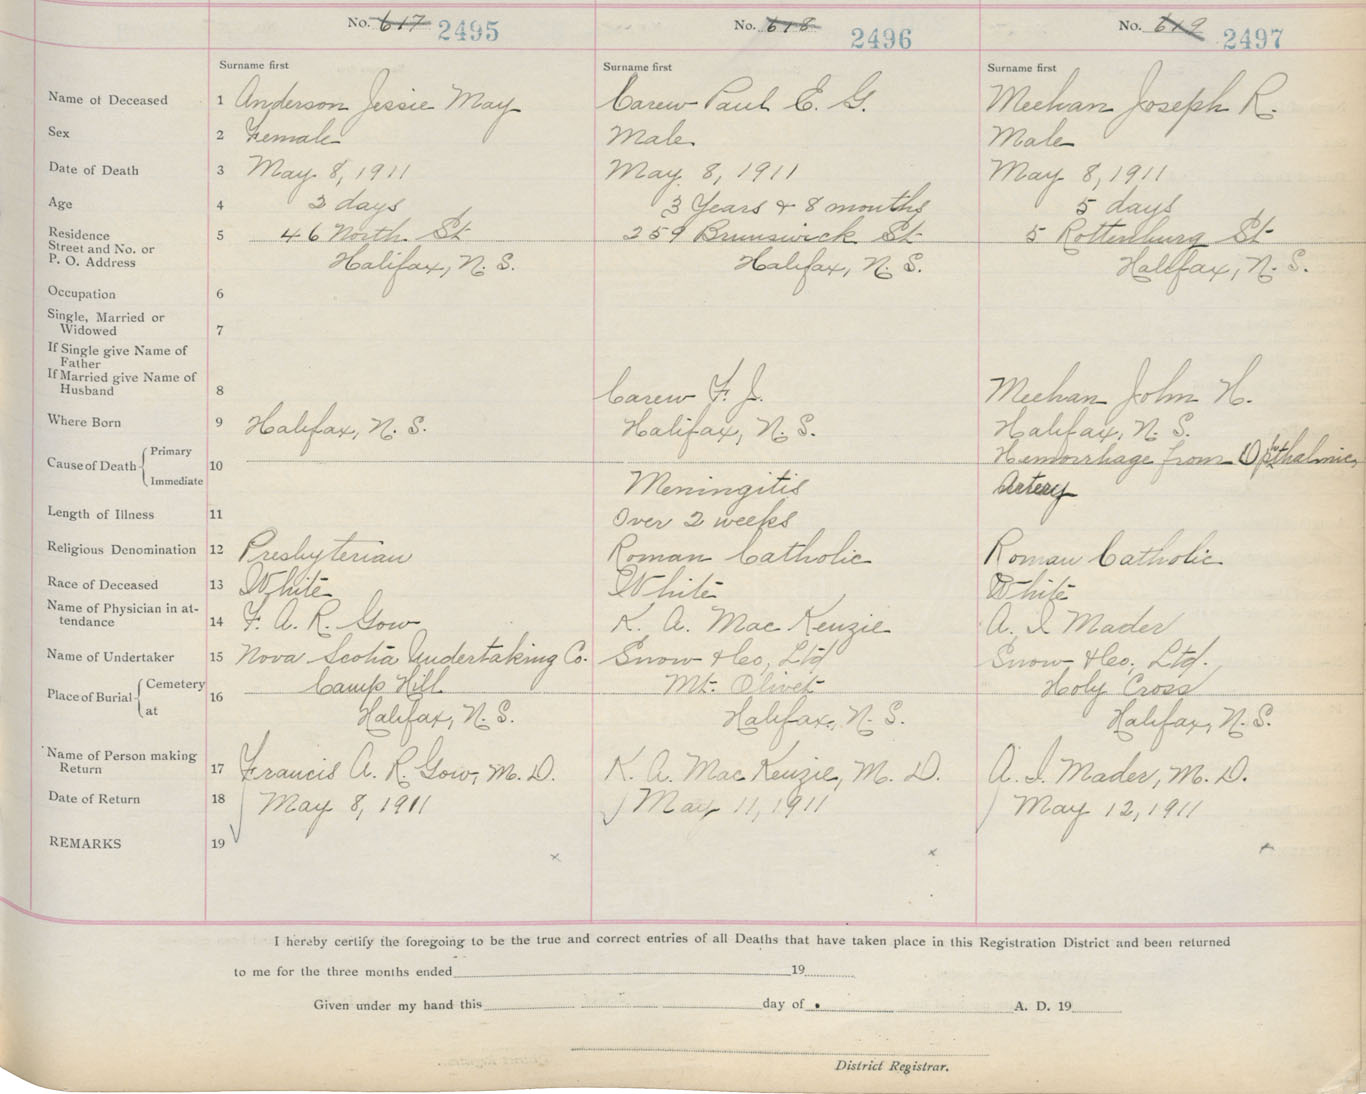 No. 617 2495 No. 618 2496 No. 619 2497
Surname first Surname first Surname first
Name of Deceased 1 Anderson Jessie May Carew Paul E. G. Meehan Joseph R.
Sex 2 Female Male Male
Date of Death 3 May 8, 1911 May 8, 1911 May 8, 1911
Age 4 2 days 3 Years & 8 months 5 days
Residence 5 46 North St 259 Brunswick St 5 Rottenburg St
Street and No. or
P. O. Address Halifax, N. S. Halifax, N. S. Halifax, N. S.
Occupation 6
Single, Married or
Widowed 7
If Single give Name of
Father
If Married give Name of
Husband 8 Carew F. J. Meehan John H.
Where Born 9 Halifax, N. S. Halifax, N. S. Halifax, N. S.
Cause of Death Primary 10 Hemorrhage from Opthalmic
Immediate Meningitis Artery
Length of Illness 11 Over 2 weeks
Religious Denomination 12 Presbyterian Roman Catholic Roman Catholic
Race of Deceased 13 White White White
Name of Physician in at-
tendance 14 F. A. R. Gow K. A. Mac Kenzie A. I Mader
Name of Undertaker 15 Nova Scotia Undertaking Co. Snow & Co, Ltd Snow & Co, Ltd.
Place of Burial Cemetery 16 Camp Hill Mt. Olivet Holy Cross
at Halifax, N. S. Halifax, N. S. Halifax, N. S.
Name of Person making
Return 17 Francis A. R. Gow, M. D. K. A. Mac Kenzie, M. D. A. I. Mader, M. D.
Date of Return 18 May 8, 1911 May 11, 1911 May 12, 1911
REMARKS 19
I hereby certify the foregoing to be the true and correct entries of all Deaths that have taken place in this Registration District and been returned
to me for the three months ended 19
Given under my hand this day of A. D. 19
District Registrar.